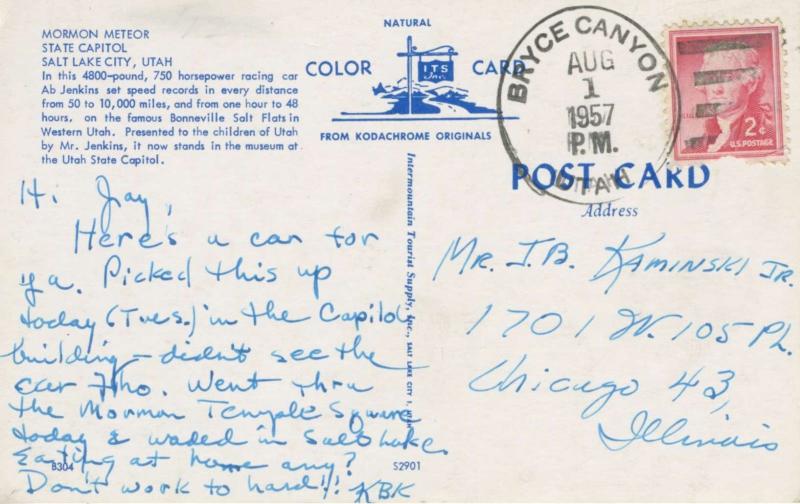 MORMON METEOR
STATE CAPITOL
SALT LAKE CITY, UTAH
In this 4800-pound, 750 horsepower racing car
Ab Jenkins set speed records in every distance
from 50 to 10,000 miles, and from one hour to 48
hours, on the famous Bonneville Salt Flats in
Western Utah. Presented to the children of Utah
by Mr. Jenkins, it now stands in the museum at
the Utah State Capitol.
NATURAL
COLOR CARD
ITS
Inc.
FROM KODACHROME ORIGINALS
BRYCE CANYON
AUG
1
1957
P.M.
UTAH
2¢
U.S. POSTAGE
POST CARD
Address
Hi Jay,
Here's a car for
ya. Picked this up
today (Tues.) in the Capitol
building – didn't see the
car tho. Went thru
the Mormon Temple Square
today & waded in Salt Lake.
Eating at home any?
Don't work to hard!! KBK
Intermountain Tourist Supply, Inc., SALT LAKE CITY 1, UTAH
Mr. J.B. Kaminski Jr.
1701 W. 105 Pl.
Chicago 43,
Illinois
B304
S2901